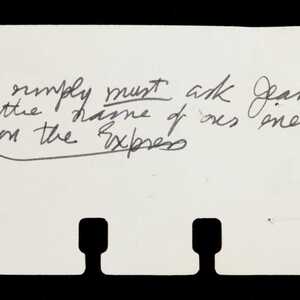 simply must ask Jean
the name of our
on the Express